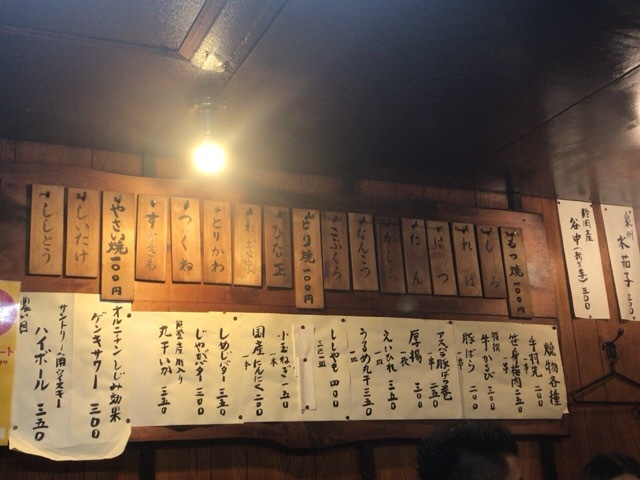 泉州
水茄子 三〇〇
静岡産
谷中 三〇〇
もつ焼 一〇〇円
しろ
ればー
はつ
たん
かしら
なんこつ
こぶくろ
とり焼 一〇〇円
ひな正
ねぎ間
とりかわ
つくね
すなぎも
やさい焼 一〇〇円
しいたけ
ししとう
焼物各種
手羽先 一本 二〇〇
笹身梅肉 一串 二五〇
特撰
牛かるび 一串 二〇〇
豚ばら 一串 二〇〇
アスパラ豚ばら巻 二〇〇
厚揚 一枚 三〇〇
えいひれ 三五〇
うるめ丸干 三五〇
ししゃも 四〇〇
小玉ねぎ 一本 一五〇
国産にんにく 一本 二〇〇
しめじバター 三五〇
じゃがバター 二〇〇
丸干いか 三五〇
オルニチンしじみ効果
ゲンキサワー 三〇〇
サントリー角ウイスキー
濃い目
ハイボール 三五〇